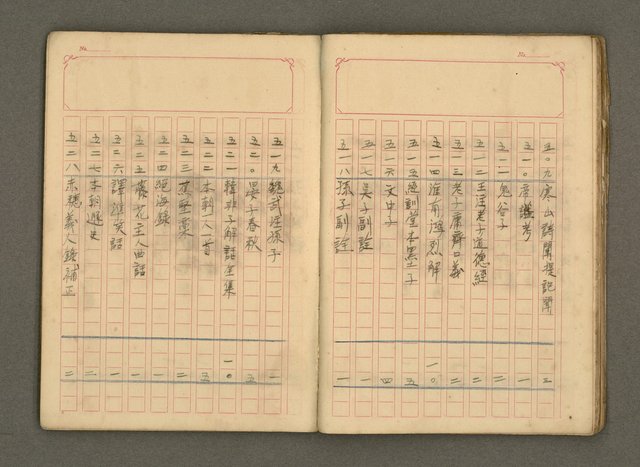 No.
五〇九寒山詩闡提記聞 三
五一〇 考 一
五一一鬼谷子 一
五一二王注老子道德經 二
五一三老子鬳齋口義 二
五一四淮南鴻烈解 一〇
五一五經訓堂本墨子 五
五一六文中子 四
五一七吳子副詮 一
五一八孫子副詮 一
No.
五一九魏武注孫子 一
五二〇晏子春秋 五
五二一韓非子解詁全集 一〇
五二二本朝一人一首 五
五二三蕉堅藁 二
五二四絕海録 二
五二五 花主人曲話 一
五二六譯準笑話 一
五二七本朝遯史 二
五二八赤穗義人錄補正 二